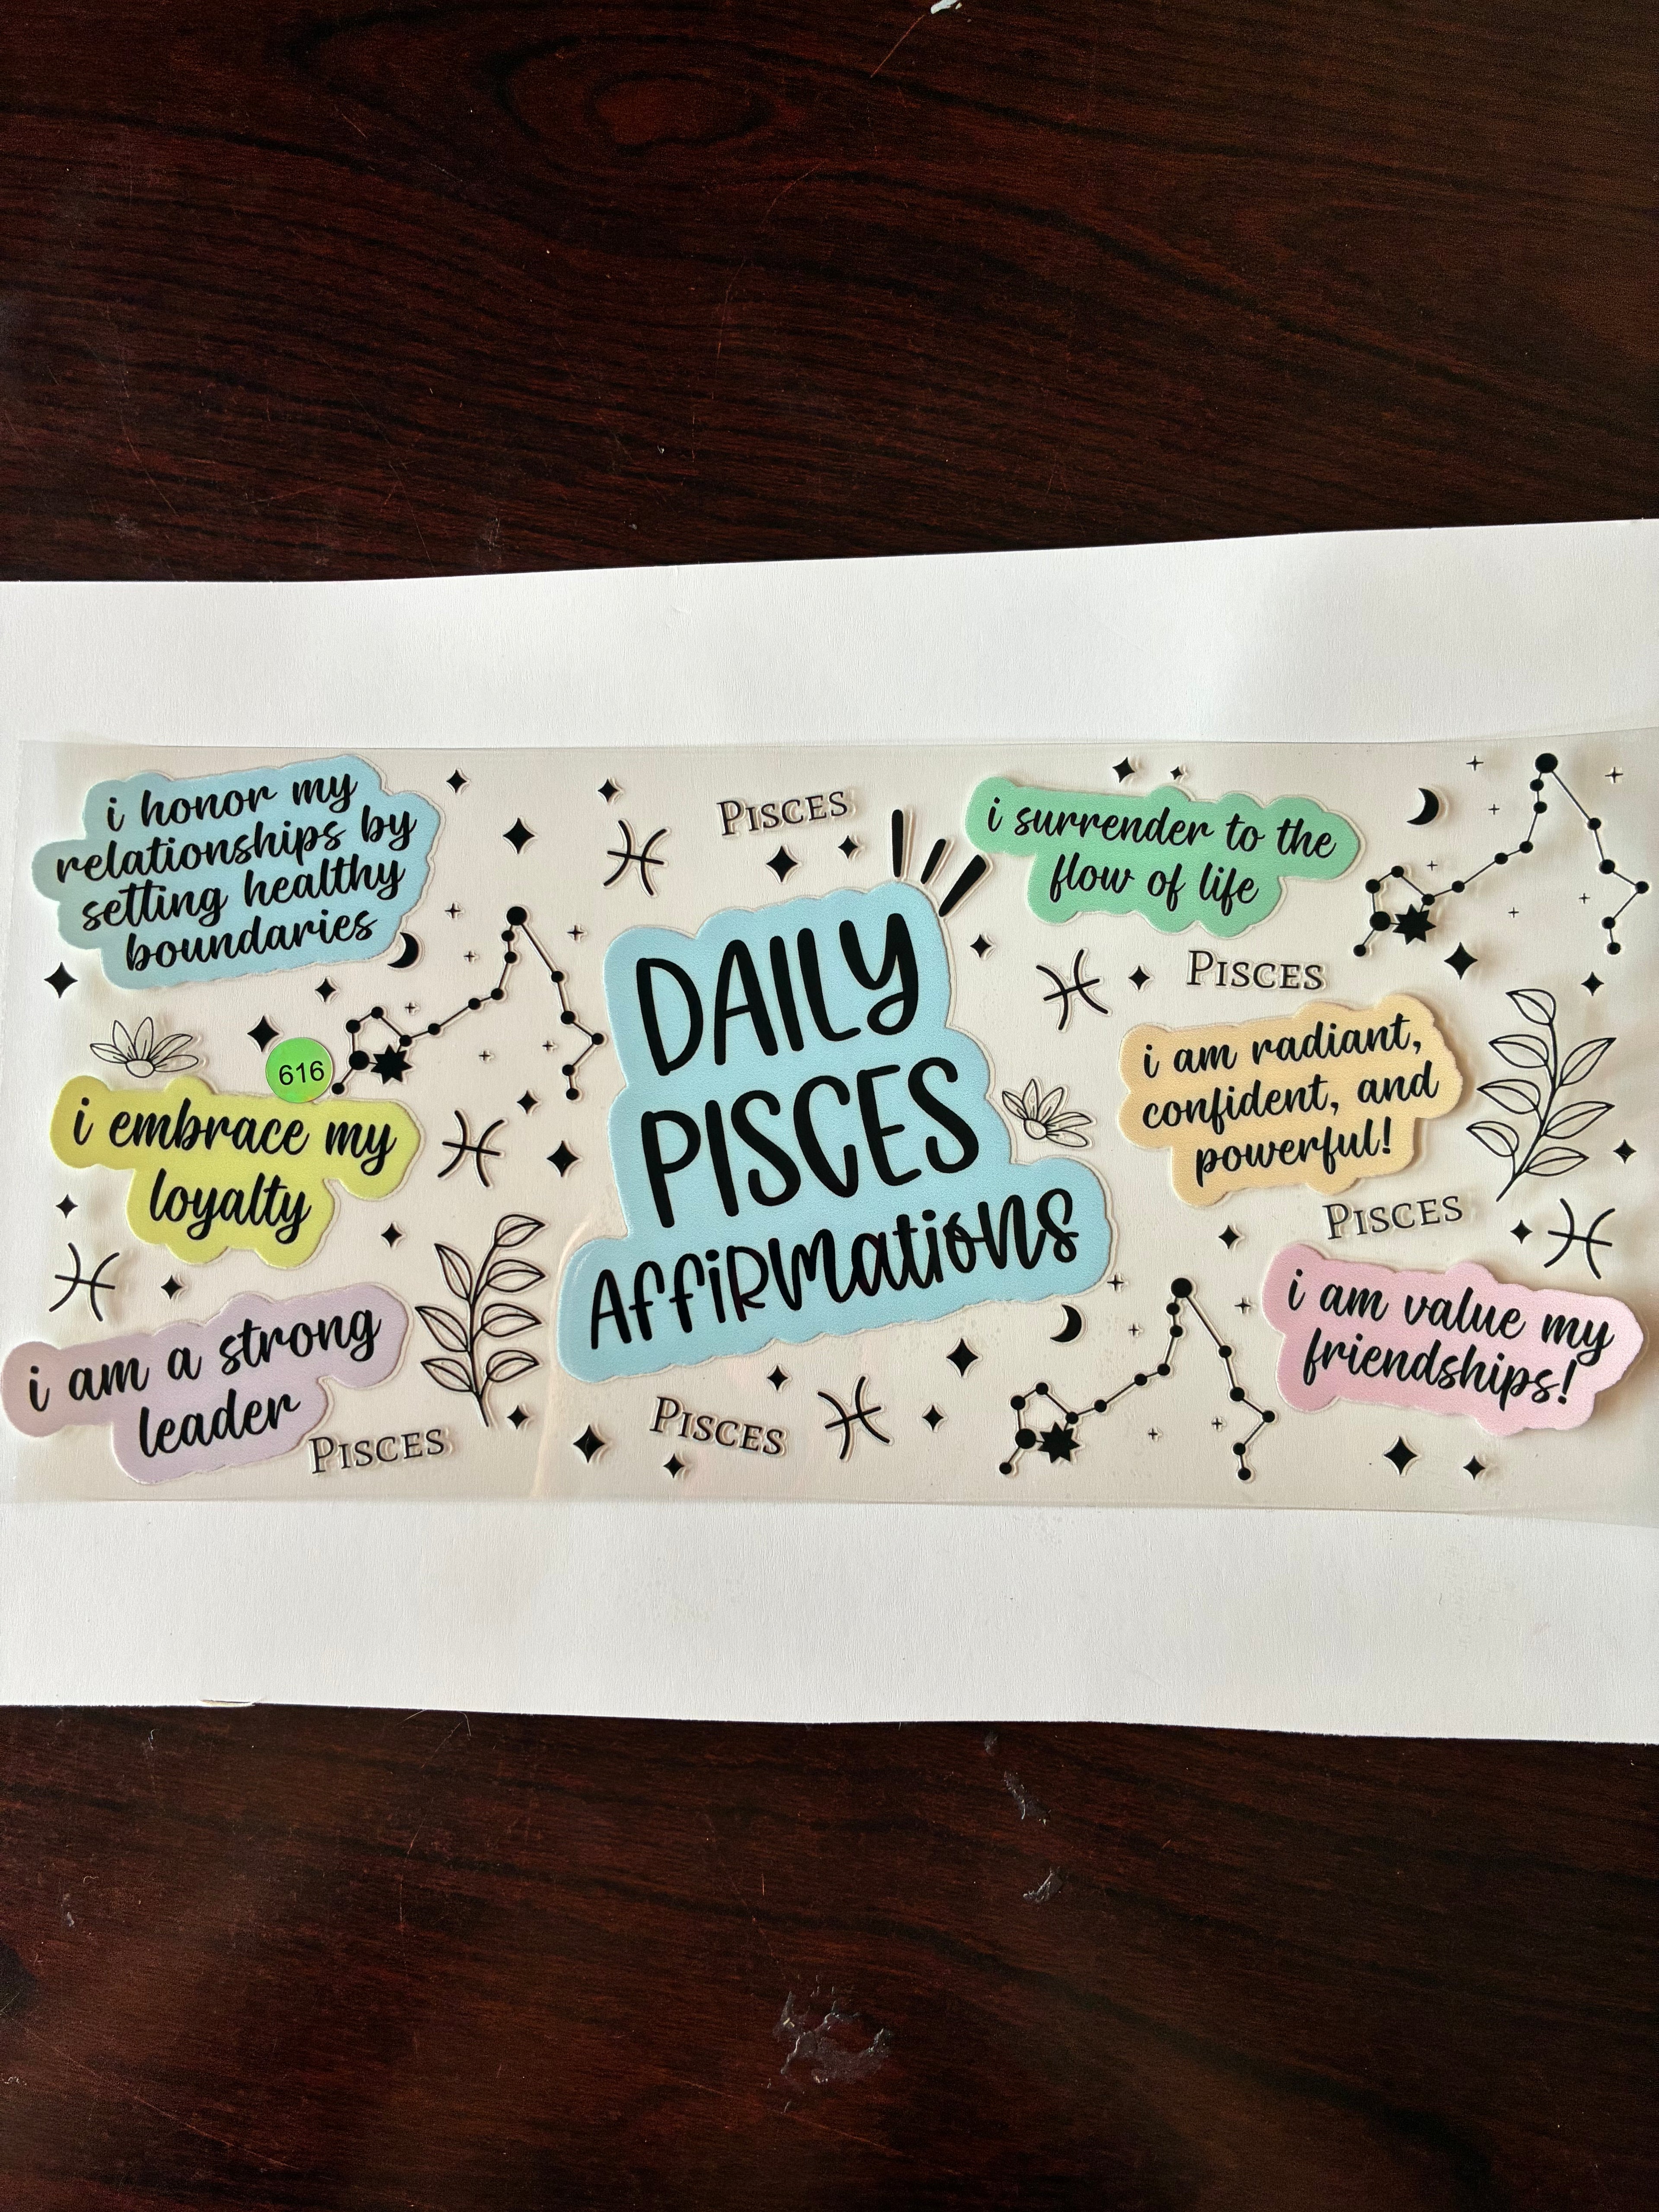 i honor my
relationships by
setting healthy
boundaries
616
i embrace my
loyalty
i am a strong
leader
PISCES
PISCES
DAILY
PISCES
AffiRMatioNS
PISCES
i surrender to the
flow of life
PISCES
i am radiant,
confident, and
powerful!
PISCES
i am value my
friendships!